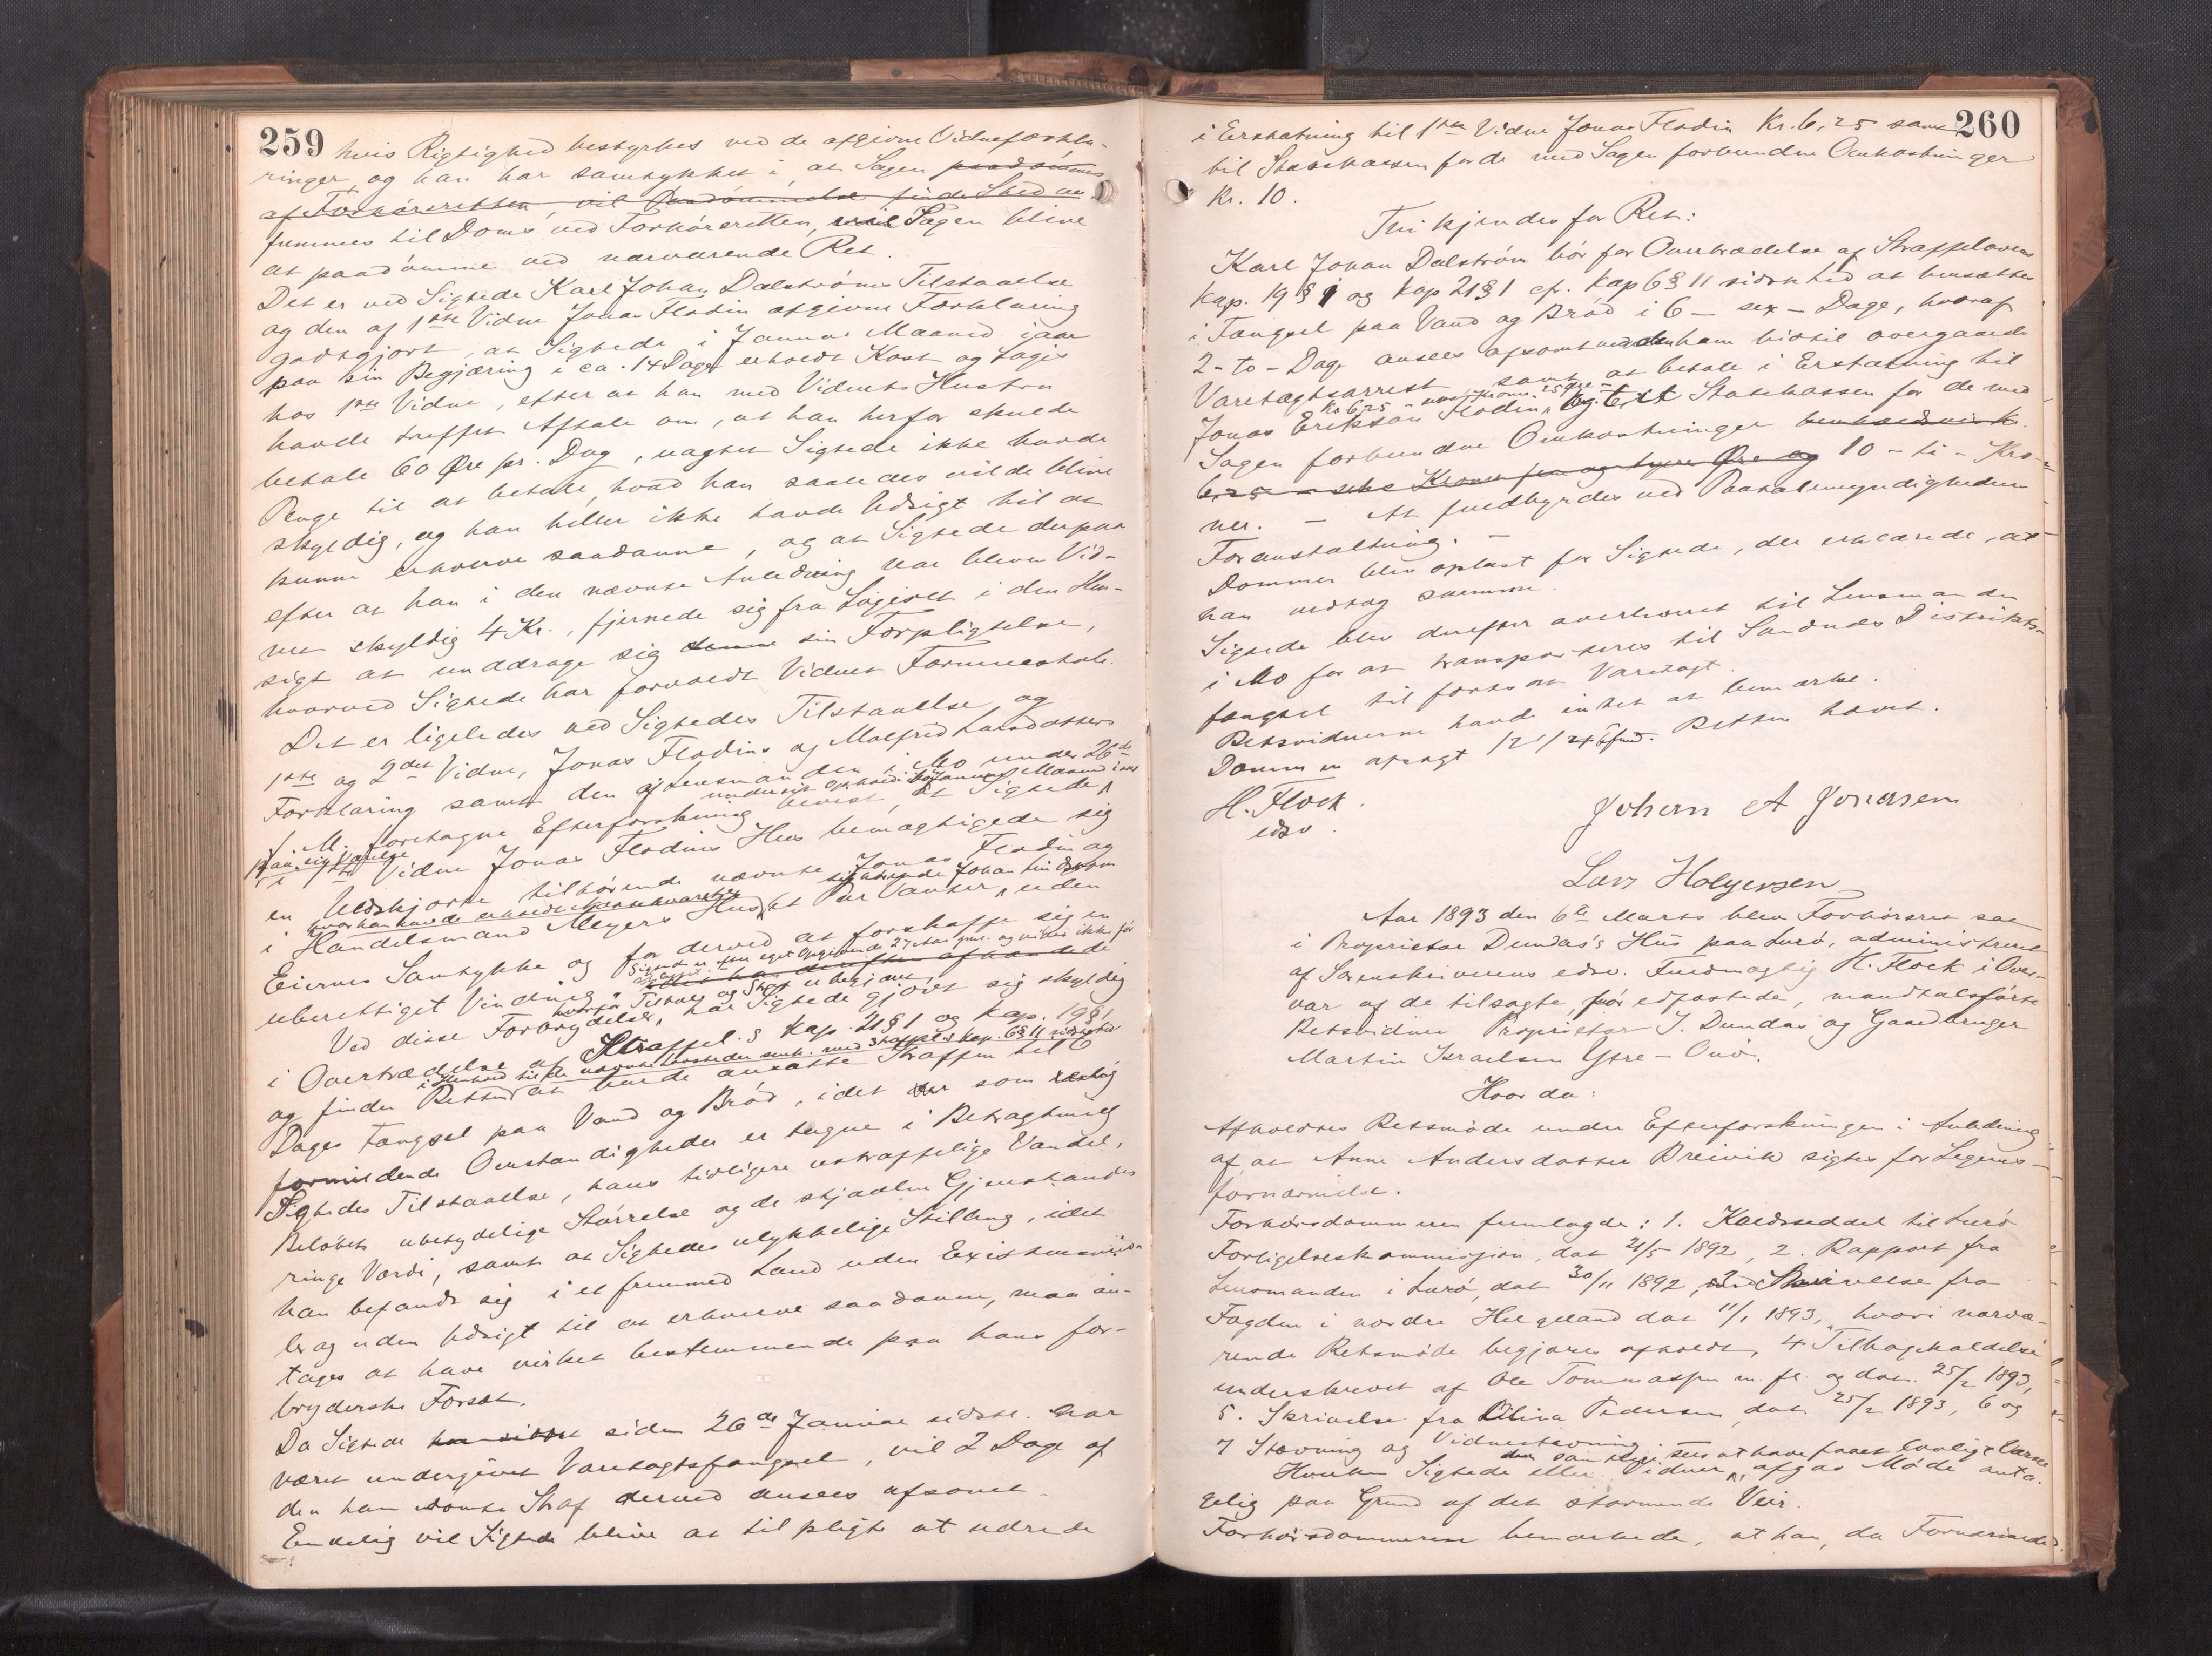 259
hvis Rigtighed bestyrkes ved de afgivne Vidneforkla-
ringer og han har samtykket i, at Sagen paadømmes
af Forhørsretten, vil Paadømmelse finde Sted
fremmes til Doms ved Forhørsretten, vil Sagen blive
at paadømme ved nærværende Ret.
Det er ved Sigtede Karl Johan Dalstrøms Tilstaaelse
og den af 1ste Vidne Jonas Flodin afgivne Forklaring
godtgjort, at Sigtede i Januar Maaned iaar
paa sin Begjæring i ca. 14 Dage erholdt Kost og Logis
hos 1ste Vidne, efter at han med Vidnets Hustru
havde truffet Aftale om, at han herfor skulde
betale 60 Øre pr. Dag, uagtet Sigtede ikke havde
Penge til at betale, hvad han saaledes vilde blive
skyldig, og han heller ikke havde Udsigt til at
kunne erhverve saadanne, og at Sigtede derpaa
efter at han i den nævnte Anledning var bleven Vid-
net skyldig 4 Kr., fjernede sig fra Logiset i den Hen-
sigt at unddrage sig denne sin Forpligtelse,
hvorved Sigtede har forvoldt Vidnet Formuestab.
Det er ligeledes ved Sigtedes Tilstaaelse og
1ste og 2det Vidne, Jonas Flodins og Malfred Larsdatters
Forklaring samt den af Lensmanden i Mo under 26de
under sit Ophold i Januar Maaned iaar
f. M. foretagne Efterforskning bevist, at Sigtede
i 1ste Vidne Jonas Flodins Hus bemægtigede sig
en Uldskjorte tilhørende nævnte Jonas Flodin og
tilhørende Johan Lindstrøm
hvor han havde erholdt Nattekvarter
i Handelsmand Meyers Hus, et Par Vanter, uden
Eiernes Samtykke og for derved at forskaffe sig en
Sigtede er efter eget Opgivende 27 Aar gml. og vides ikke før
straffet.
uberettiget Vinding, idet han derefter afhændede
hvorfor Tiltale og Straf er begjært
Ved disse Forbrydelser, har Sigtede gjort sig skyldig
i Overtrædelse af Straffel.s Kap. 21 § 1 og Kap. 19 § 1
i Henhold til de nævnte Lovsteder smh. med Straffel.s Kap. 6 § 11 sidste Led
og finder Retten at burde ansætte Straffen til 6
Dages Fængsel paa Vand og Brød, idet der som
formildende Omstændigheder er tagne i Betragtning
Sigtedes Tilstaaelse, hans tidligere ustraffelige Vandel,
Beløbets ubetydelige Størrelse og de stjaalne Gjenstandes
ringe Værdi, samt at Sigtedes ulykkelige Stilling, idet
han befandt sig i et fremmed Land uden Existensmid-
ler og uden Udsigt til at erhverve saadanne, maa an-
tages at have virket bestemmende paa hans for-
bryderske Forsæt.
Da Sigtede har siddet siden 26de Januar sidste har
været undergivet Varetægtsfængsel, vil 2 Dage af
den ham idømte Straf derved ansees afsonet.
Endelig vil Sigtede blive at tilpligte at udrede
260
i Erstatning til 1ste Vidne Jonas Flodin Kr. 6,25 samt
til Statskassen for de med Sagen forbundne Omkostninger
Kr. 10.
Thi kjendes for Ret:
Karl Johan Dalstrøm bør for Overtrædelse af Straffelovens
Kap. 19 § 1 og Kap 21 § 1 cf. Kap 6 § 11 sidste Led at hensættes
i Fængsel paa Vand og Brød i 6 – sex – Dage, hvoraf
2 – to – Dage ansees afsonet ved den ham hidtil overgaaede
Varetægtsarrest samt at betale i Erstatning til
Kr 6.25 – sex Kroner 25 Øre –
Jonas Erikson Flodin, og til Statskassen for de med
Sagen forbundne Omkostninger henholdsvis Kr.
6,25 – sex Kroner fem og tyve Øre og 10 – ti – Kro-
ner. – At fuldbyrdes ved Paatalemyndighedens
Foranstaltning. –
Dommen blev oplæst for Sigtede, der erklærede, at
han vedtog samme.
Sigtede blev derefter overleveret til Lensmanden
i Mo for at transporteres til Sandnes Distrikts-
fængsel til fortsat Varetægt.
Retsvidnerne havde intet at bemærke.
Dommen afsagt Retten hævet.
H. Flock.
edsv.
Johan A Jonassen
Lars Holgersen
Aar 1893 den 6te Marts blev Forhørsret sat
i Proprietær Dundas's Hus paa Lurø, administreret
af Sorenskriverens edsv. Fuldmægtig H. Flock i Over-
vær af de tilsagte, før edfæstede, mandtalsførte
Retsvidner Proprietær I. Dundas og Gaardbruger
Martin Israelsen Ytre-Onø.
Hvor da:
Afholdtes Retsmøde under Efterforskningen i Anledning
af, at Anne Andersdatter Breivik sigtes for Legems-
fornærmelse.
Forhørsdommeren fremlagde: 1. Kaldsseddel til Lurø
Forligelseskommission, dat 21/5 1892, 2. Rapport fra
Lensmanden i Lurø, dat 30/11 1892, 3. Skrivelse fra
Fogden i nordre Helgeland dat 11/1 1893, hvori nærvæ-
rende Retsmøde begjæres afholdt, 4 Tilbagekaldelse
underskrevet af Ole Tommassen m. fl. og dat. 25/2 1893,
5. Skrivelse fra Olina Pedersen dat 25/2 1893, 6 og
7 Stævning og Vidnestævning.
der sees at have faaet lovligt Varsel
Hverken Sigtede eller Vidner, afgav Møde anta-
gelig paa Grund af det stormende Veir.
Forhørsdommeren bemærkede, at han, da Fornærmede